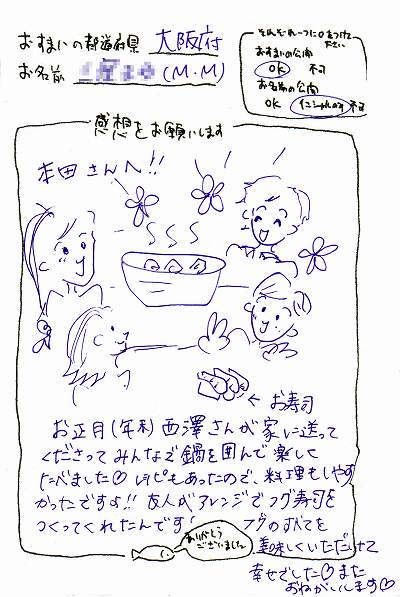 おすまいの都道府県 大阪府
お名前 (M.M)
それぞれ一つに○をつけて
ください
おすまいの公開
OK 不可
お名前の公開
OK イニシャルのみ 不可
感想をお願いします
本田さんへ!!
← お寿司
お正月(年末)西澤さんが家に送って
くださってみんなで鍋を囲んで楽しく
たべました♡ レシピもあったので、料理もしやす
かったですよ!! 友人がアレンジでフグ寿司を
つくってくれたんです! フグのすべてを
美味しくいただけて
幸せでした♡また
おねがいします♡
ありがとう
ございました